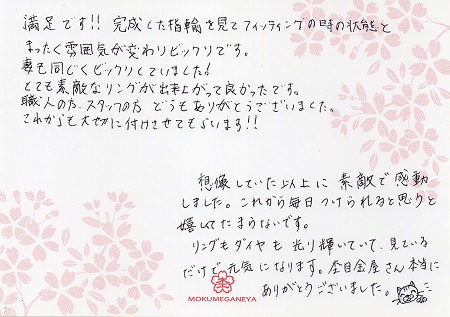 満足です!! 完成した指輪を見てフィッティングの時の状態と
まったく雰囲気が変わりビックリです。
妻も同じくビックリしていました!
とても素敵なリングが出来上がって良かったです。
職人の方、スタッフの方 どうもありがとうございました。
これからも大切に付けさせてもらいます!!
想像していた以上に 素敵で感動
しました。これから毎日つけられると思うと
嬉しくてたまらないです。
リングもダイヤも 光り輝いていて、見ている
だけで元気になります。杢目金屋さん本当に
ありがとうございました。
MOKUMEGANEYA